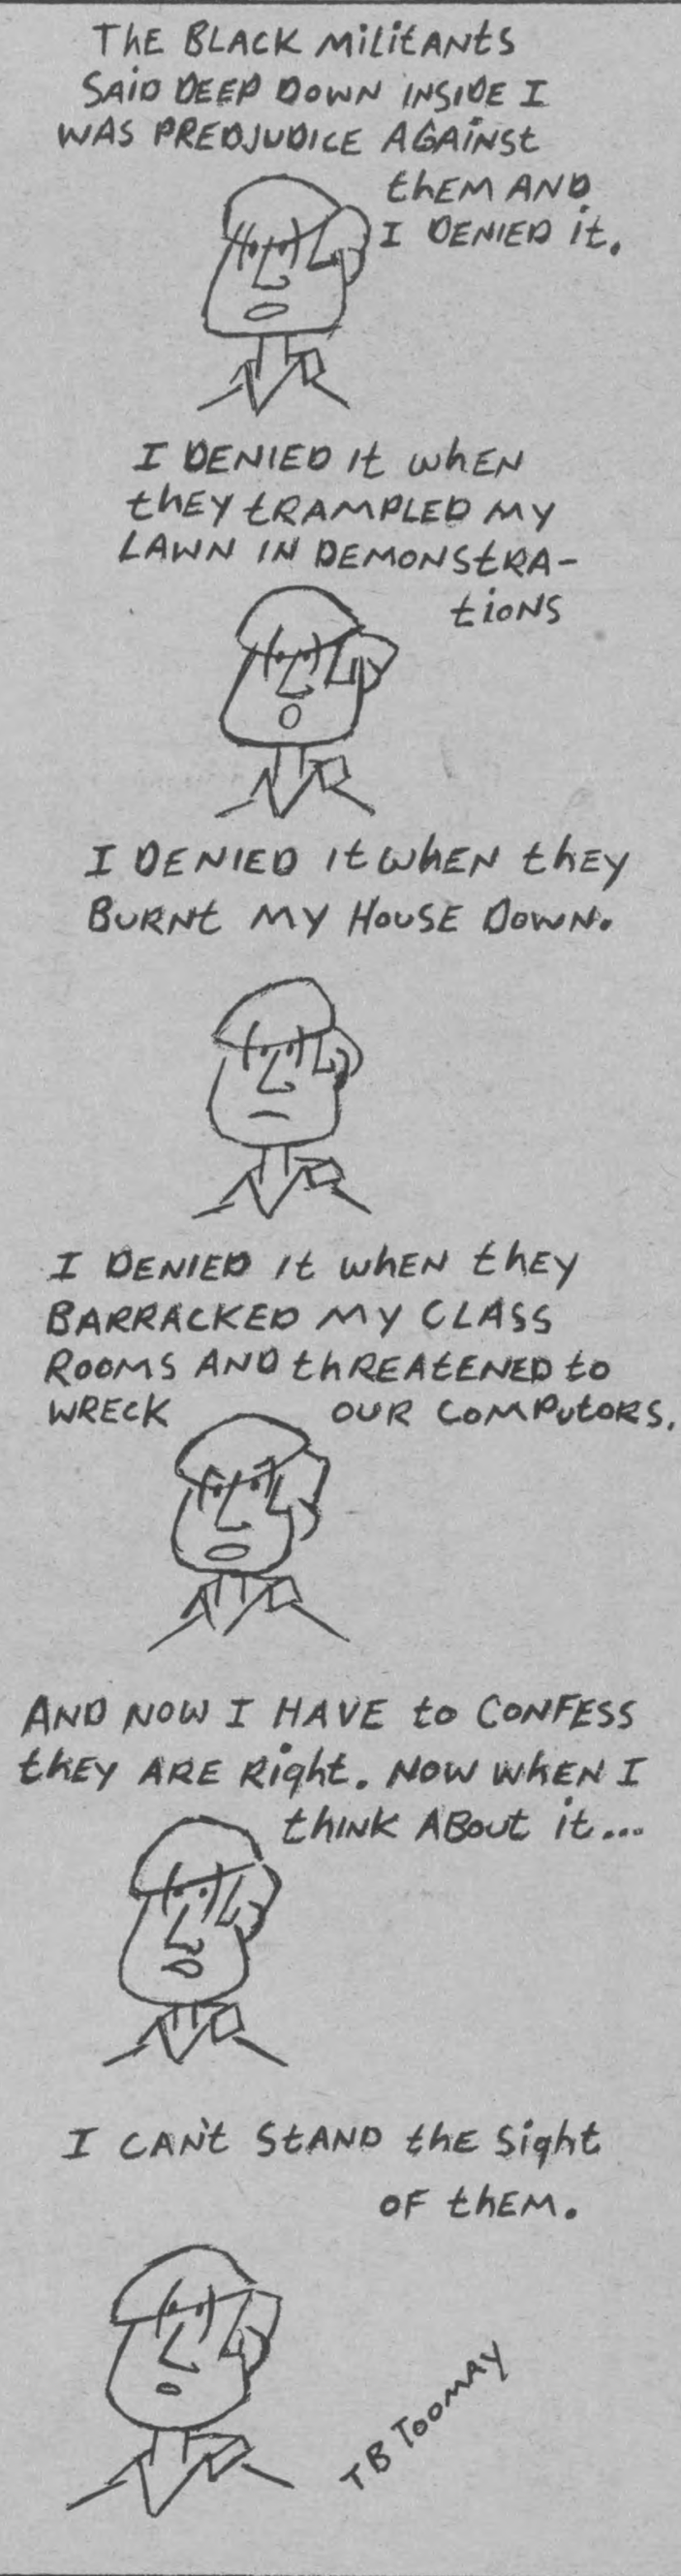 THE BLACK MILITANTS
SAID DEEP DOWN INSIDE I
WAS PREDJUDICE AGAINST
THEM AND
I DENIED IT.
I DENIED IT WHEN
THEY TRAMPLED MY
LAWN IN DEMONSTRA-
TIONS
I DENIED IT WHEN THEY
BURNT MY HOUSE DOWN.
I DENIED IT WHEN THEY
BARRACKED MY CLASS
ROOMS AND THREATENED TO
WRECK OUR COMPUTORS.
AND NOW I HAVE TO CONFESS
THEY ARE RIGHT. NOW WHEN I
THINK ABOUT IT...
I CAN'T STAND THE SIGHT
OF THEM.
TB TOOMAY